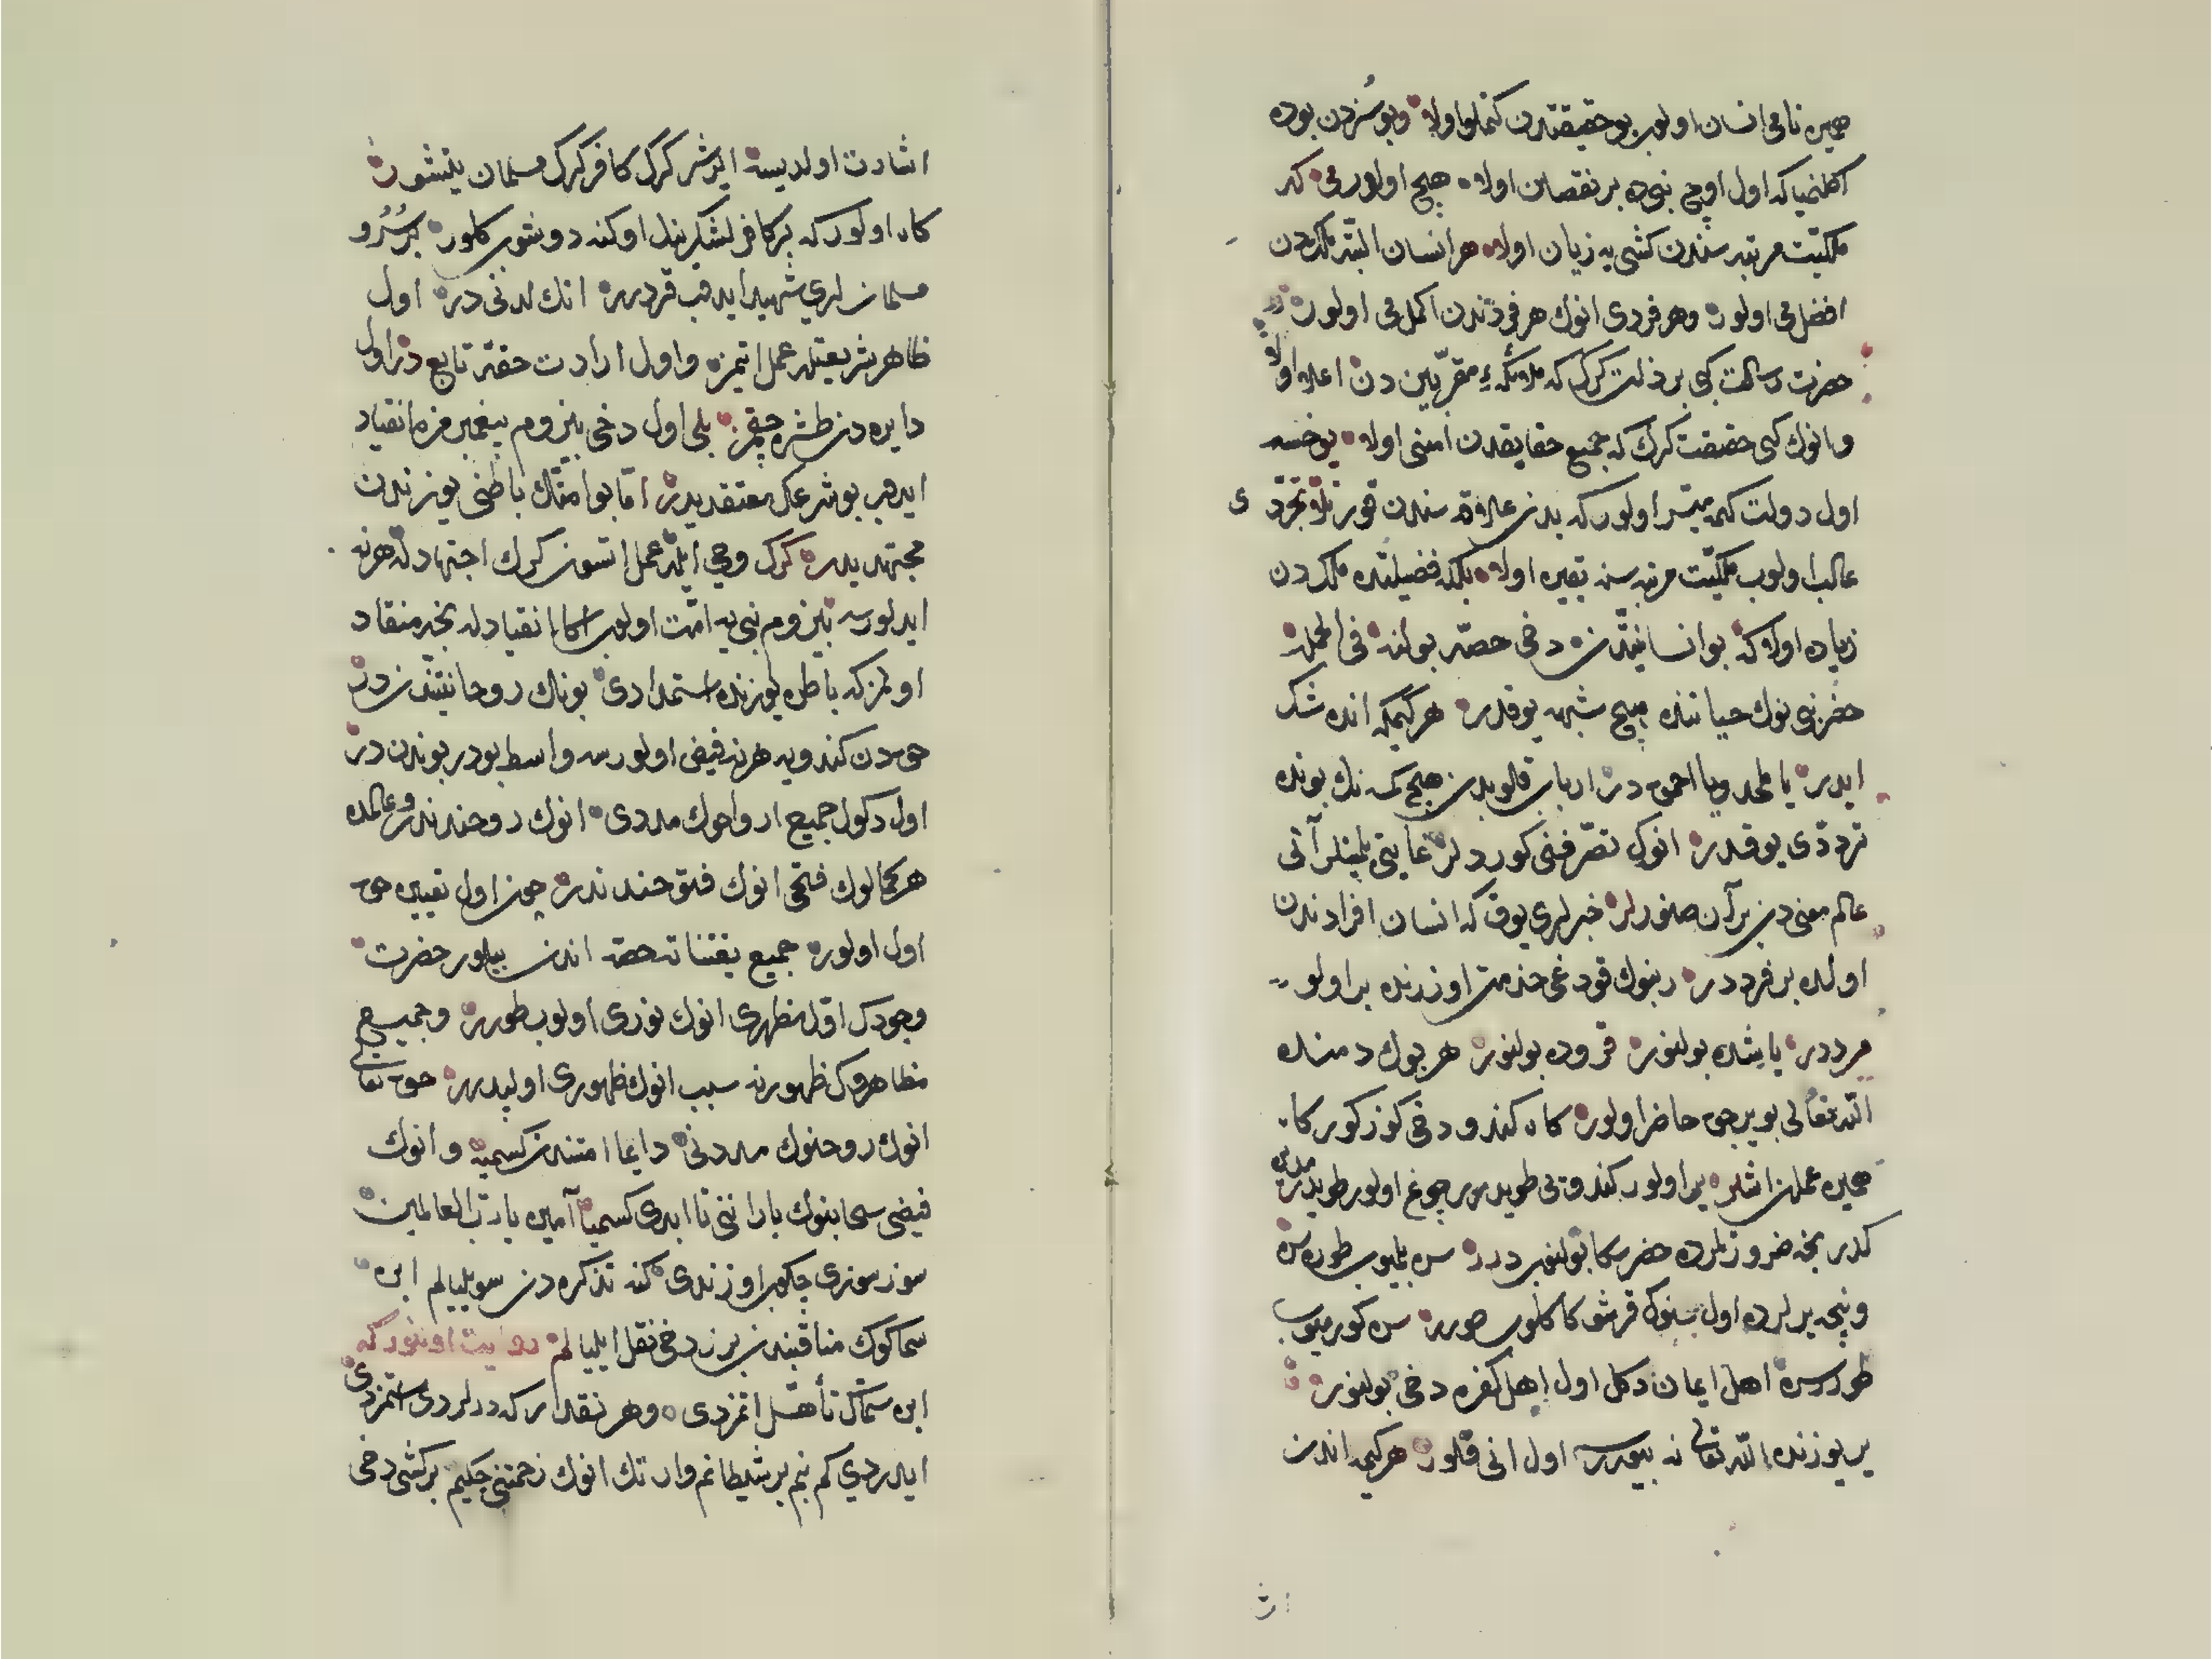 همین نامی انسان اولوب بو حقیقتدن کتملو اولا وبو سُزدن بوده
اکلنمیا که اول اوچ نبیده بر نقصان اولا هیچ اولورمی که
ملکیّت مرتبه سندن کشی یه زیان اولا هر انسان البتّه ملکدن
افضلمی اولور وهر فردی انوك هر فردندن اکملمی اولور
حضرت رسالت کبی بر ذات کرك که ملائکهٔ مقرّبین دن اعلا اولا
وانوك کبی حقیقت کرك که جمیع حقایقدن اسنی اولا یوخسه
اول دولت کمه میسّر اولور که بدن علاقه سندن قورتلا تجرّدی
غالب اولوب ملکیّت مرتبه سنه یقین اولا بلکه فضیلتده ملکدن
زیاده اولا که بو انسانیّتدن دخی حصّه بولنه فی الجمله
خضر نبی نوك حیاتنده هیچ شبهه یوقدر هر کیمکه انده شك
ایدر یا ملحد ویا احمق در ارباب قلوبدن هیچ کمسه نك بونده
تردّدی یوقدر انوك تصرّفنی کوردلر غایتی بلمینلر آنی
عالم معنی دن بر آن صنورلر خبرلری یوق که انسان افرادندن
اولده بر فرددر ربنوك قودغی خدمت اوزرنده بر اولو
مرددر یا یشده بولنور قروده بولنور هر بوك دمنده
الله تعالی بویرجق حاضر اولور کاه کندو دخی کوزکور کا
همین عملن اشلر یر اولور کندوتی طویدرمز چوغ اولور طویدرمدین
کدر نجه ضرورتلرده خضر سکا بولنوب درر سن بلمیوب طورسن
ونیجه یرلرده اول سنوك قرشوکا کلوب صورر سن کورمیوب
طوررسن اهل ایمان دکل اول اهل کفره دخی بولنور
یر یوزنده الله تعالی نه بیورسه اول انی قلور هر کیمه اندن
اشارت اولدیسه ایرشر کرك کافر کرك مسلمان یتشور
کاه اولور که بر کافر لشکرینك اوکنه دوشوب کلور بر سُرُو
مسلمانلری شهید ایدهب قردرر انك لدنی در اول
ظاهر شریعتله عمل اتمز واول ارادت حقه تابع در اول
دایره دن طشره چقمز بلی اول دخی بیزوم پیغمبرمزه انقیاد
ایدهب بو شرعك معتقدیدر امّا بو امّتك باطنی یوزندن
مجتهدیدر کرك وحی ایله عمل اتسون کرك اجتهادله هرنه
ایدلورسه بیزوم نبی یه امّت اولوب اکا انقیادله نجه منقاد
اولمز که باطن یوزنده استمدادی بونك روحانیّتندن در
حق دن کندویه هرنه فیض اولورسه واسطه بودر بوندن در
اول دکول جمیع ارواحوك مددی انوك روحندندر وعالمده
هر کمالوك فتحی انوك فتوحندندر چون اول تعیین حق
اول اولور جمیع یقنات حقه اندن بیلور حضرت
وجودك اوّل مظهری انوك نوری اولوب طورر وجمیع
مظاهروك ظهورنه سبب انوك ظهوری اولیدرر حق تعالی
انوك روحنوك مددنی دایما امّتندن کسمیه وانوك
فیضی سحابنوك بارانی تا ابدی کسمیا آمین یا ربّ العالمین
سوز سوزی چکوب اوزندی کنه تذکره دن سویلیالم ابن
سماکوك مناقبندن بر ز دخی نقل ایلیالم روایت اولنور که
ابن سمّاك تأهّل اتمزدی وهر نقدر که درلردی استمزدی
ایدردی کم بنم بر شیطانم وار تك انوك زحمتنی چکیم بر کشی دخی
ار